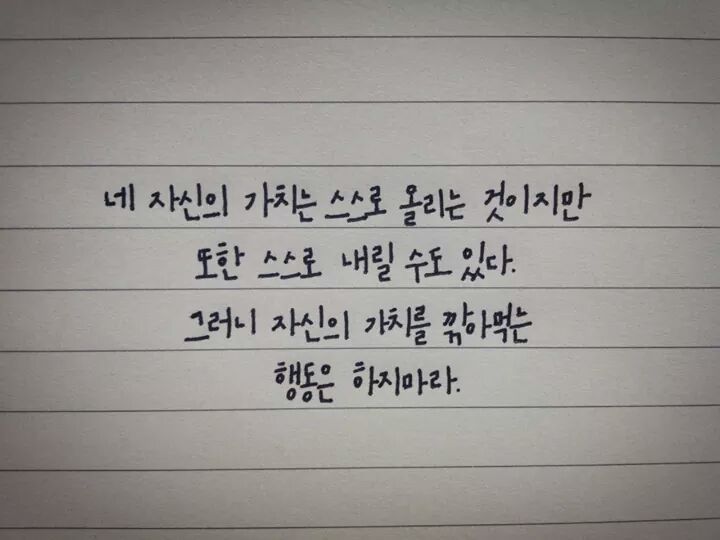 네 자신의 가치는 스스로 올리는 것이지만
또한 스스로 내릴 수도 있다.
그러니 자신의 가치를 깎아먹는
행동은 하지마라.